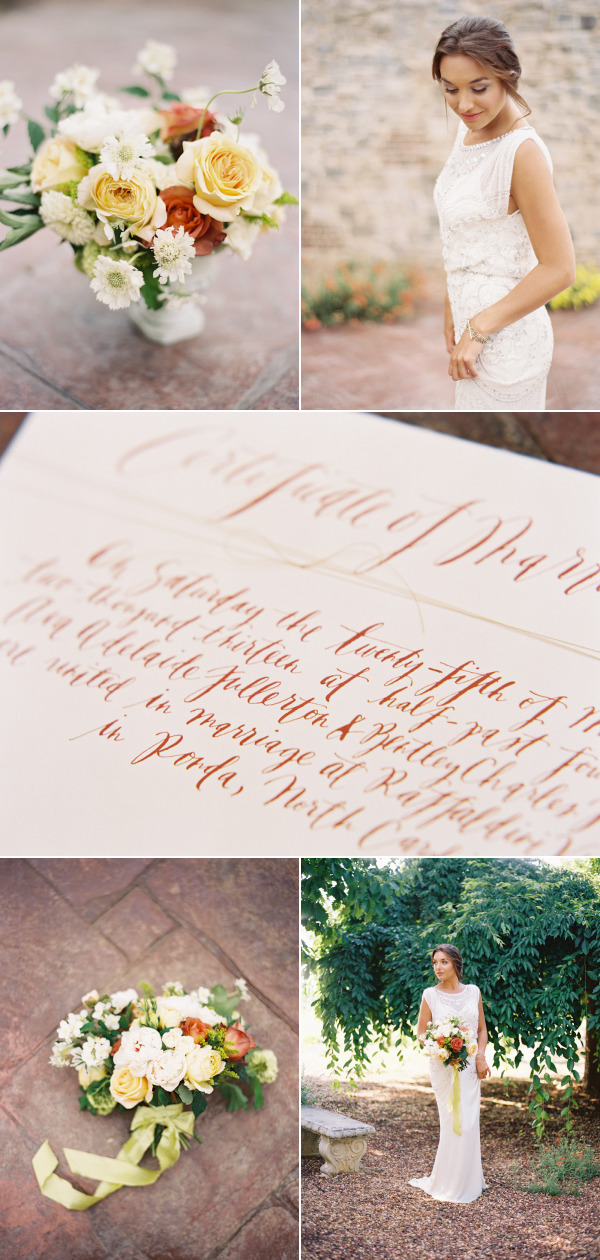 Certificate of Marr
On Saturday the twenty fifth of M
two-thousand thirteen at half-past fou
Ava Adelaide Fullerton & Bentley Charles
ere united in marriage at Raffaldini
in Ronda, North Car